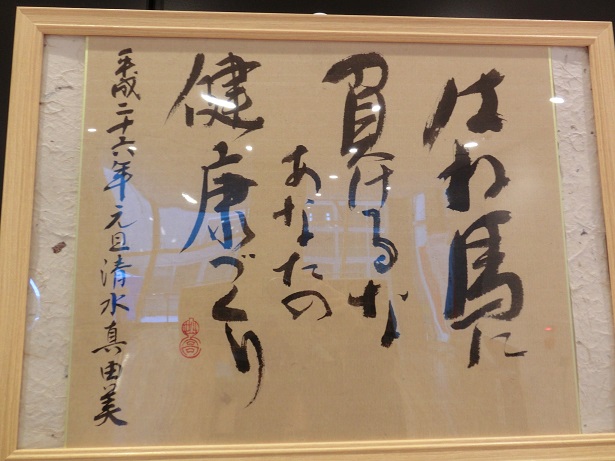 はね馬に
負けるな
あなたの
健康づくり
平成二十六年元旦清水真由美